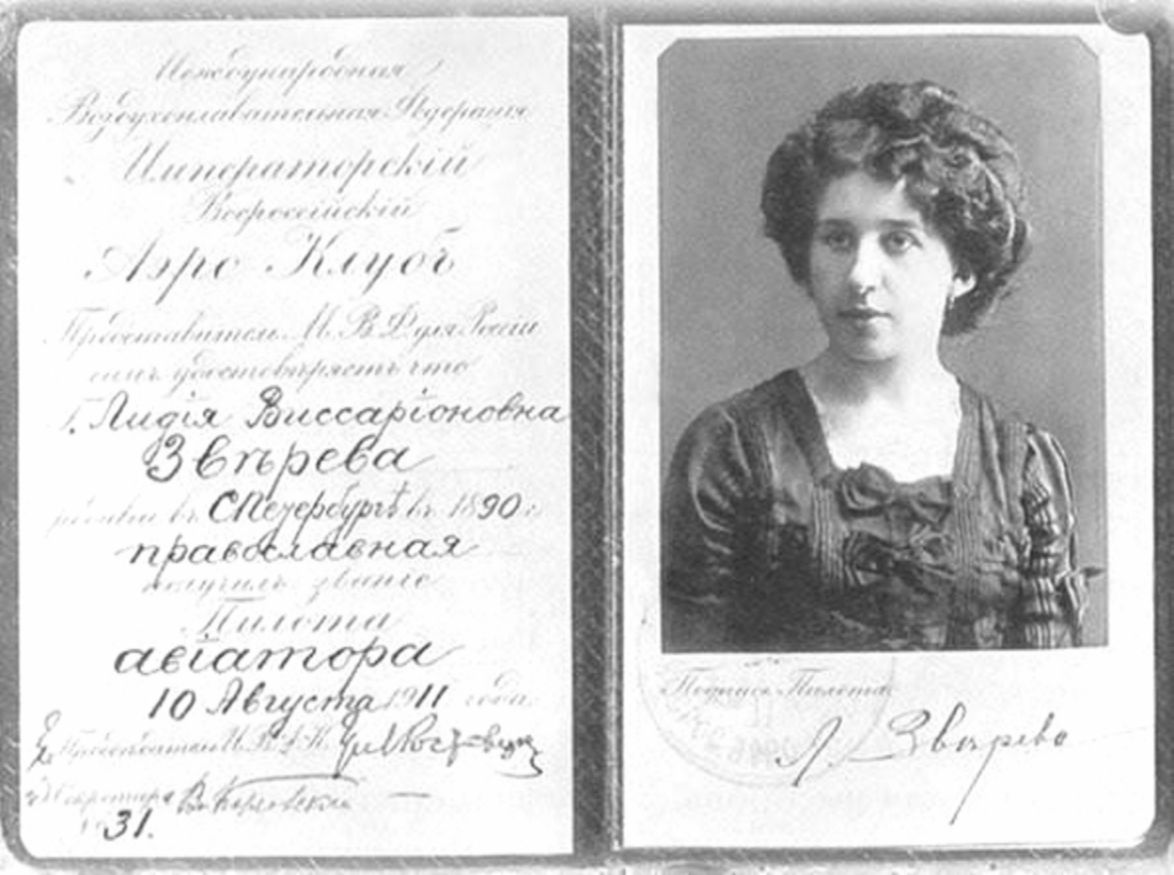 Международная
Воздухоплавательная Федерація
Императорскій
Всероссійскій
Аэро Клубъ
Представитель М. В. Ф. для Россіи
симъ удостовѣряетъ что
Г. Лидія Виссаріоновна
Звѣрева
въ СПетербургѣ въ 1890 г.
православная
получилъ званіе
Пилота
авіатора
10 Августа 1911 года
Предсѣдатель И. В. А. К.
Секретарь
31.
Подпись Пилота
Л. Звѣрева